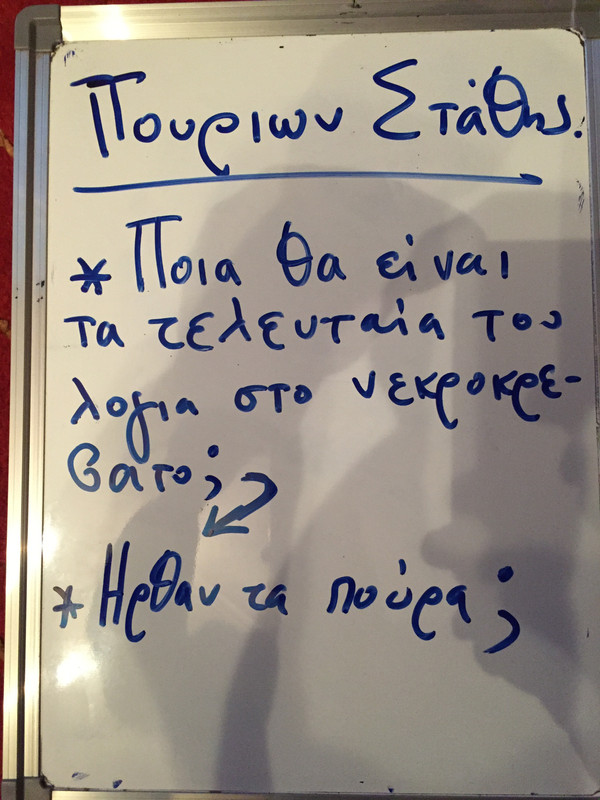 Πουριων Στάθης.
* Ποια θα είναι
τα τελευταία του
λογια στο νεκροκρε-
βατο;
* Ηρθαν τα πούρα;